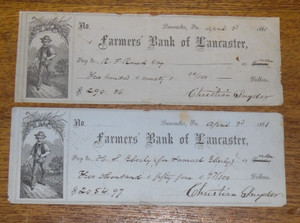 No. Lancaster, Pa. April 2d 1881
Farmers' Bank of Lancaster,
Pay to
Two hundred & ninety & 06/100 Dollars.
$ 290.06 Christian Snyder
No. Lancaster, Pa. April 2d 1881
Farmers' Bank of Lancaster,
Pay to H. S. Eberly for Samuel Eberly
Two thousand & fifty four & 97/100 Dollars.
$ 2054.97 Christian Snyder